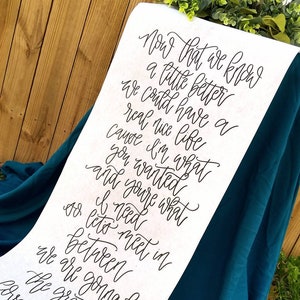 now that we know
a little better
we could have a
real nice life
cause I'm what
you wanted
and you're what
I need
so let's meet in
between
we are gonna be
the gr